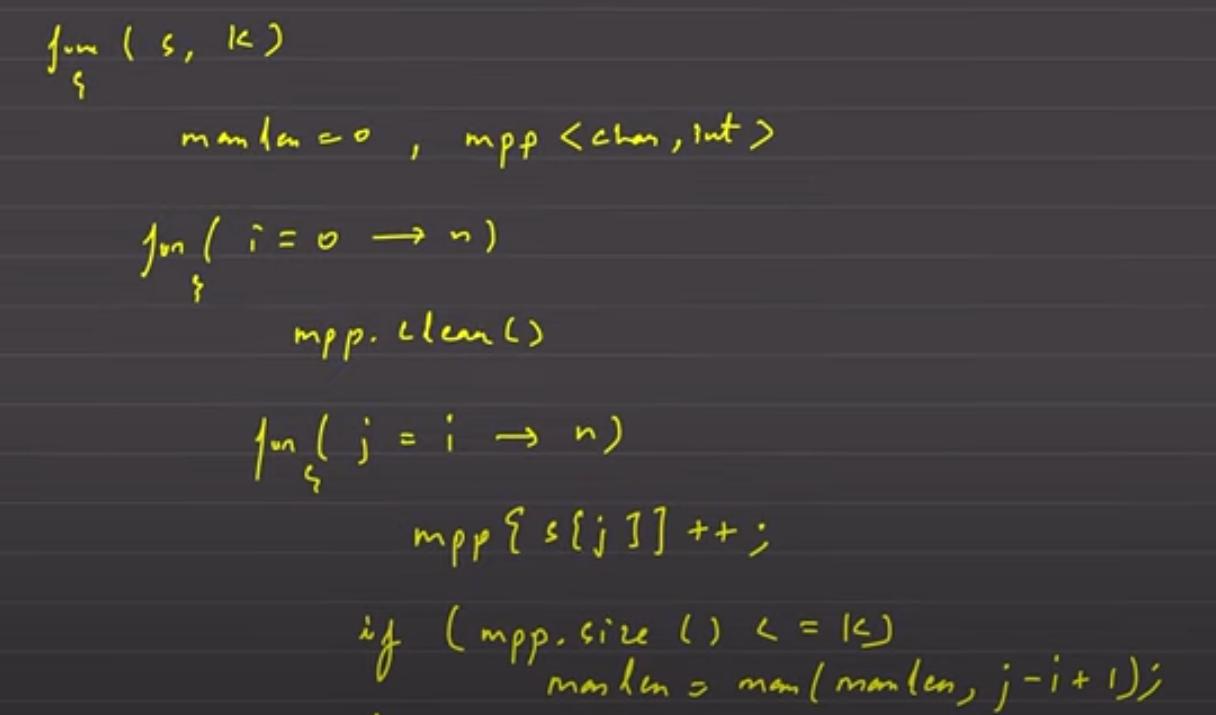 func ( s, k )
{
maxlen = 0 , mpp <char, int>
for ( i = 0 → n )
{
mpp. clear ( )
for ( j = i → n )
{
mpp [ s [ j ] ] ++ ;
if ( mpp. size ( ) < = k )
maxlen = max ( maxlen, j - i + 1 ) ;